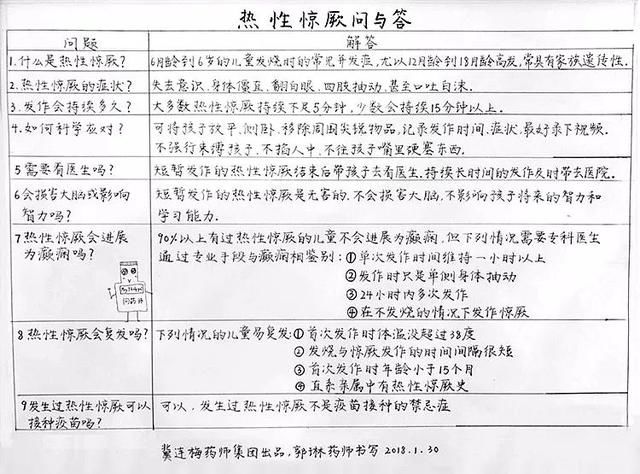 热性惊厥问与答
问题 解答
1.什么是热性惊厥? 6月龄到6岁的儿童发烧时的常见并发症,尤以12月龄到18月龄高发,常具有家族遗传性.
2.热性惊厥的症状? 失去意识.身体僵直.翻白眼.四肢抽动.甚至口吐白沫.
3.发作会持续多久? 大多数热性惊厥持续不足5分钟,少数会持续15分钟以上.
4.如何科学应对? 可将孩子放平.侧卧.移除周围尖锐物品,记录发作时间.症状.最好录下视频.
不强行束缚孩子.不掐人中.不往孩子嘴里硬塞东西.
5需要看医生吗? 短暂发作的热性惊厥结束后带孩子去看医生.持续长时间的发作及时带去医院.
6会损害大脑或影响 短暂发作的热性惊厥是无害的.不会损害大脑,不影响孩子将来的智力和
智力吗? 学习能力.
7热性惊厥会进展 90%以上有过热性惊厥的儿童不会进展为癫痫,但下列情况需要专科医生
为癫痫吗? 通过专业手段与癫痫相鉴别:①单次发作时间维持一小时以上
②发作时只是单侧身体抽动
③24小时内多次发作
④在不发烧的情况下发作惊厥
问药师
8热性惊厥会复发吗? 下列情况的儿童易复发:①首次发作时体温没超过38度
②发烧与惊厥发作的时间间隔很短
③首次发作时年龄小于15个月
④直系亲属中有热性惊厥史
9发生过热性惊厥可以 可以,发生过热性惊厥不是疫苗接种的禁忌症
接种疫苗吗?
冀连梅药师集团出品,郭琳药师书写2018.1.30